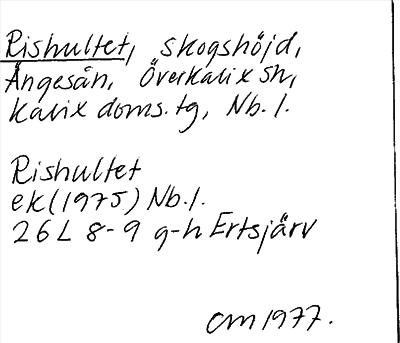 Rishultet, skogshöjd,
Ängesån, Överkalix sn,
Kalix doms.tg, Nb.l.
Rishultet
ek (1975) Nb.l.
26L 8-9 g-h Ertsjärv
CM 1977.